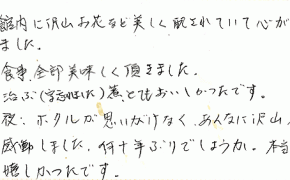 館内に沢山お花など美しく配されていて心が
ました。
食事、全部美味しく頂きました。
治ぶ(字忘れました)煮、とてもおいしかったです。
夜、ホタルが思いがけなく、あんなに沢山
感動しました。何十年ぶりでしょうか。本当
嬉しかったです。